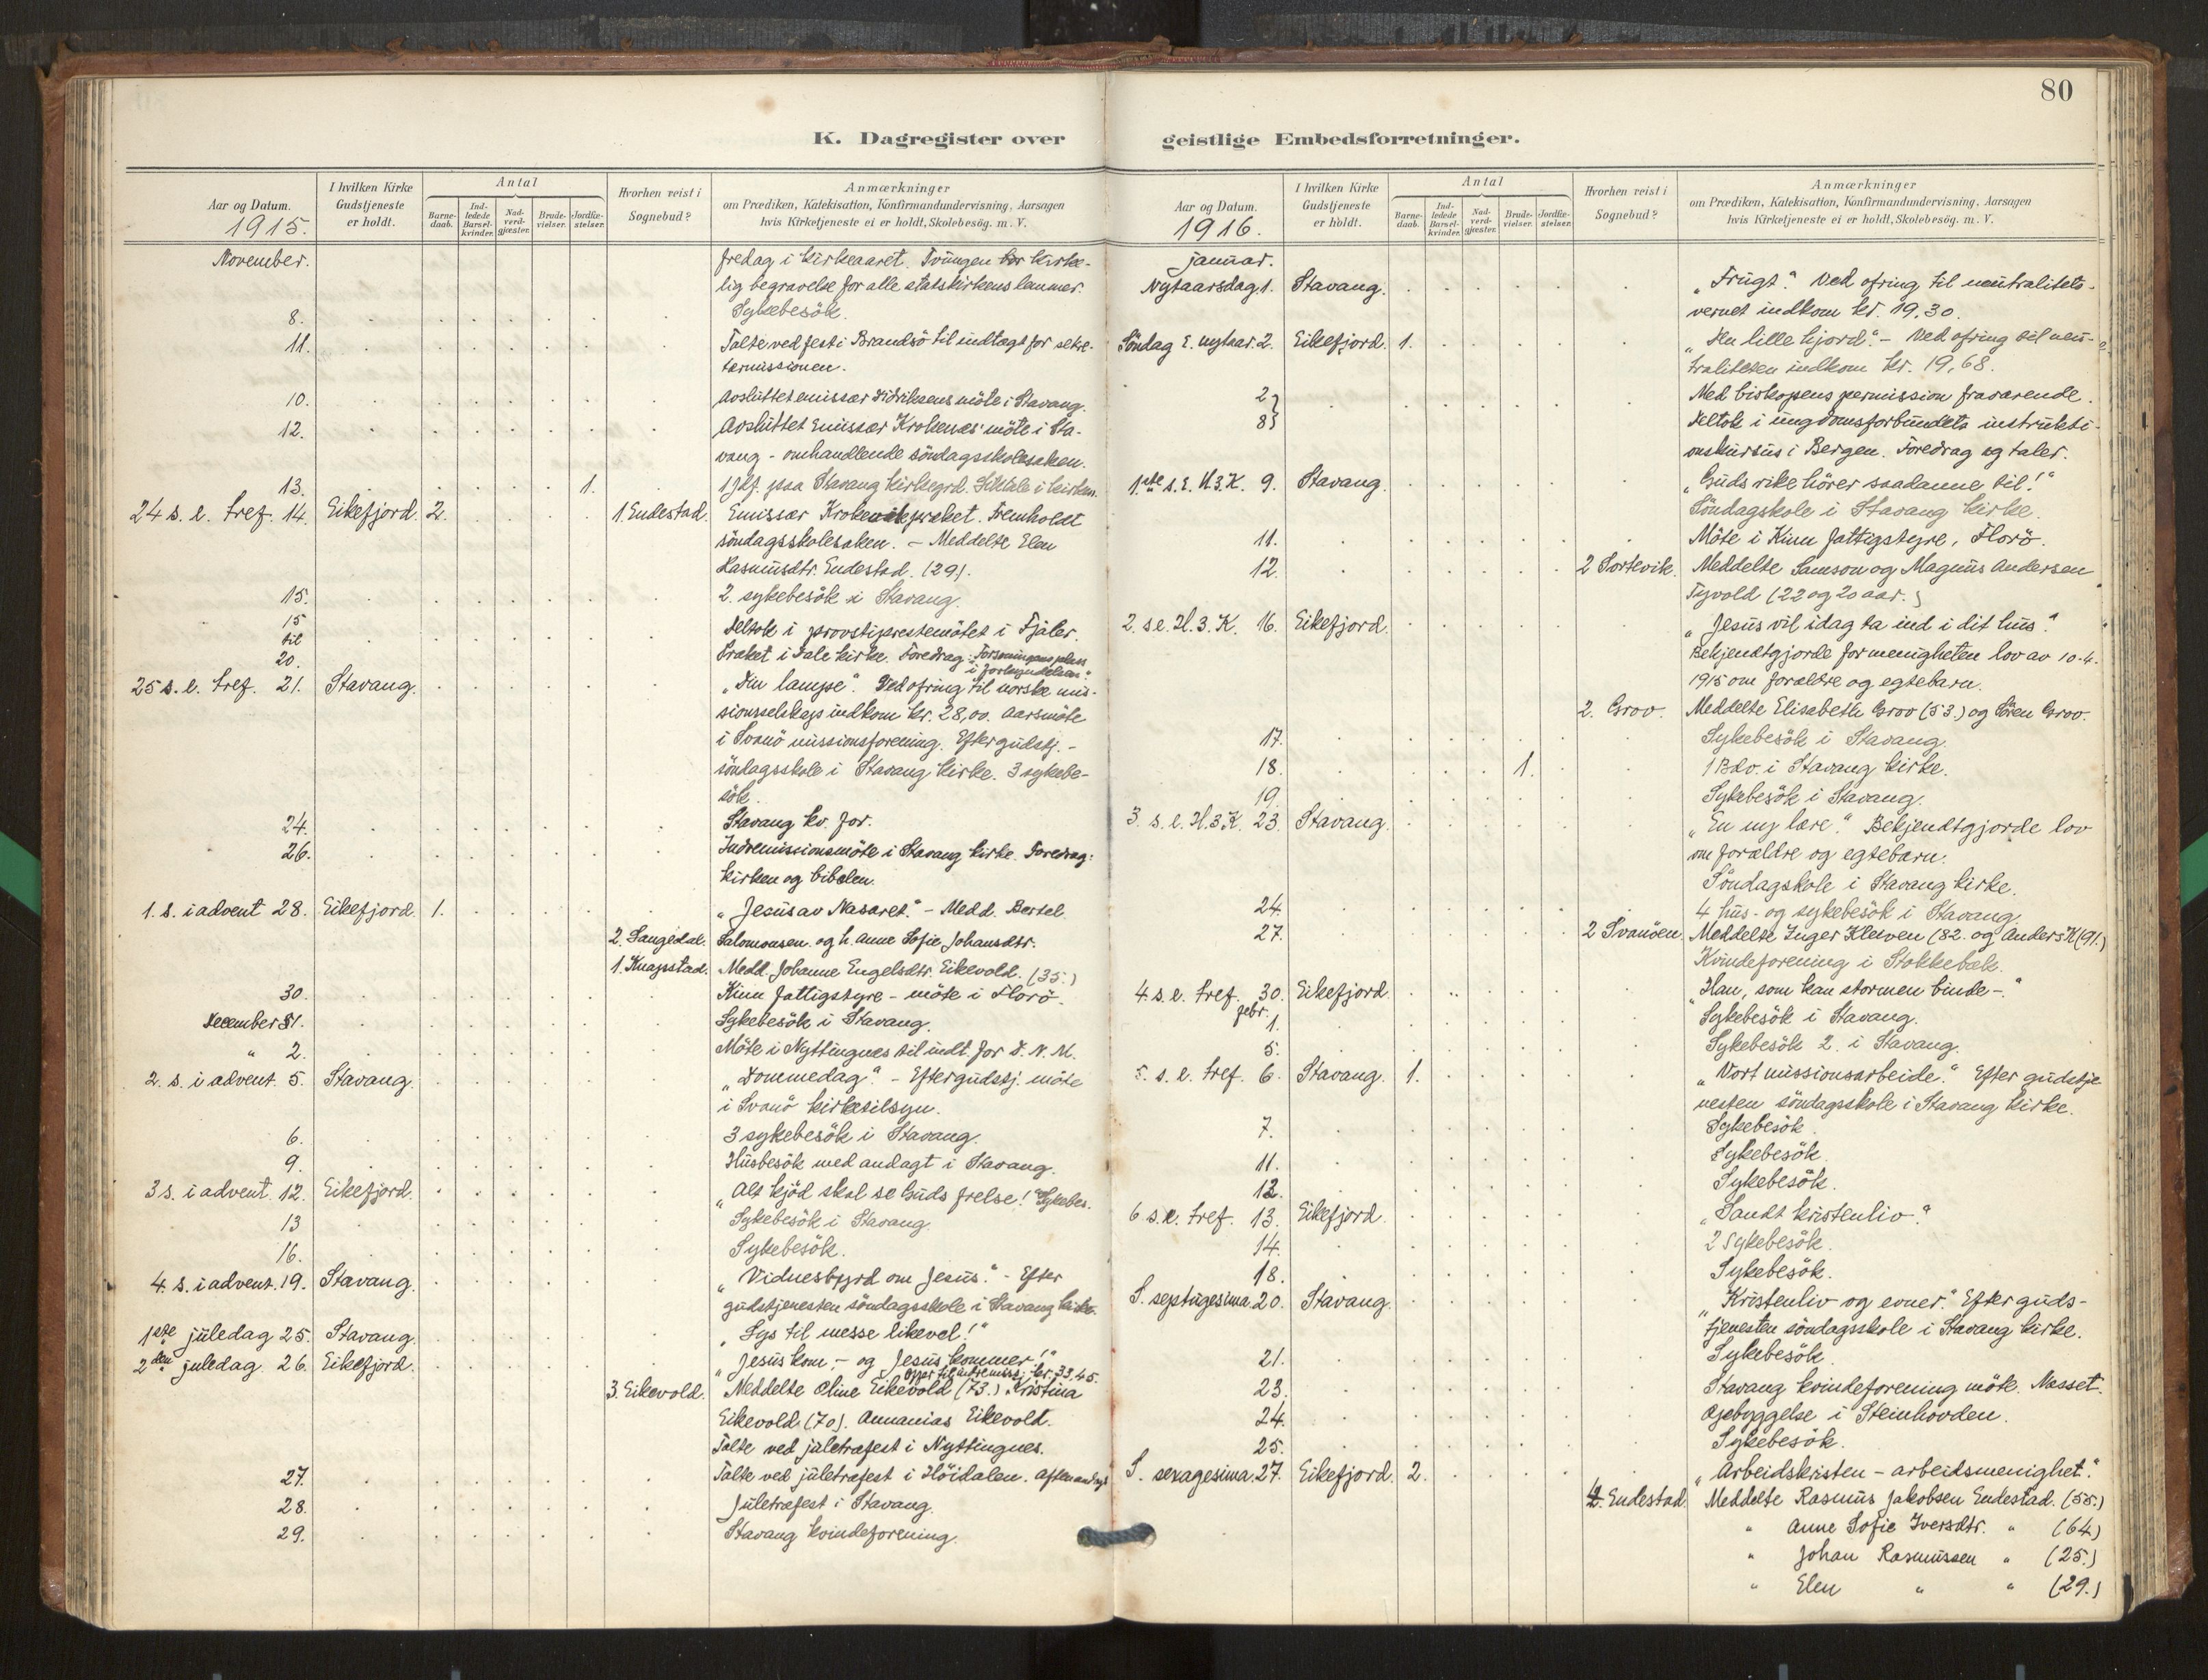 80
K. Dagregister over
Aar og Datum.
1915.
I hvilken Kirke Gudstjeneste er holdt.
Antal
Barnedaab.
Indledede Barselkvinder.
Nadverdgjæster.
Brudevielser.
Jordfæstelser.
Hvorhen reist i Sognebud?
Anmærkninger
om Prædiken, Katekisation, Konfirmandundervisning, Aarsagen
hvis Kirketjeneste ei er holdt, Skolebesög. m. V.
November. fredag i kirkeaaret. Tvungen kirke-
lig begravelse for alle statskirkens lemmer.
8. Sykebesök.
11. Talte ved fest i Brandsö til indtægt for sekre-
tærmissionen.
10. Avsluttet emissær Didriksens möte i Stavang.
12. Avsluttet Emissær Krokenes' möte i Sta-
vang - omhandlende söndagsskolesaken.
13. 1. 1 Jkf. paa Stavang kirkegrd. i kirken.
24 s. e. tref. 14. Eikefjord. 2. 1. Endestad. Emissær præket. Fremholdt
söndagsskolesaken. - Meddelte Elen
Rasmusdtr. Endestad. (29).
15. 2. sykebesök i Stavang.
15 til 20. Deltok i provstiprestemötet i Fjaler.
Præket i Dale kirke. Foredrag: Forsoningens plass
i forkyndelsen."
25 s. e. tref. 21. Stavang. "Din lampe". Ved ofring til norske mis-
sionsselskap indkom kr. 28,00. Aarsmöte
i Svanö missionsforening. Efter gudstj. -
söndagsskole i Stavang kirke. 3 sykebe-
sök.
24. Stavang kv. for.
26. Indremissionsmöte i Stavang kirke. Foredrag:
Kirken og bibelen.
1. s. i advent 28. Eikefjord. 1. "Jesus av Nasaret." - Medd. Bertel
2. Langedal. Salomonsen og h. Anne Sofie Johansdtr.
1. Knapstad. Medd. Johanne Engelsdtr. Eikevold. (35.)
30. Kinn fattigstyre - möte i Florö.
December 1. Sykebesök i Stavang.
" 2. Möte i Nyttingnes til indt. for D. N. M.
2. s. i advent. 5. Stavang. "Dommedag." - Efter gudstj. möte
i Svanö kirketilsyn.
6. 3 sykebesök i Stavang.
9. Husbesök med andagt i Stavang.
3 s. i advent. 12. Eikefjord. "Alt kjöd skal se Guds frelse!" Sykebes.
13 Sykebesök i Stavang.
16. Sykebesök.
4. s. i advent. 19. Stavang. "Vidnesbyrd om Jesus." - Efter
gudstjenesten söndagsskole i Stavang kirke.
1ste juledag 25. Stavang. "Lys til messe likevel!"
2den juledag 26. Eikefjord. "Jesus kom, - og Jesus kommer!"
Offer til indremiss: kr. 33.45.
3. Eikevold. Meddelte Oline Eikevold (73.) Kristina
Eikevold (70). Annanias Eikevold.
Talte ved juletræfest i Nyttingnes.
27. Talte ved juletræfest i Höidalen. Aftenandagt
28. Juletræfest i Stavang.
29. Stavang kvindeforening.
geistlige Embedsforretninger.
Aar og Datum.
1916.
I hvilken Kirke Gudstjeneste er holdt.
Antal
Barnedaab.
Indledede Barselkvinder.
Nadverdgjæster.
Brudevielser.
Jordfæstelser.
Hvorhen reist i Sognebud?
Anmærkninger
om Prædiken, Katekisation, Konfirmandundervisning, Aarsagen
hvis Kirketjeneste ei er holdt, Skolebesög. m. V.
Januar.
Nytaarsdag. 1. Stavang. "Frygt." Ved ofring til neutralitets-
vernet indkom kr. 19,30.
Söndag E. nytaar. 2. Eikefjord. 1. "Du lille hjord." - Ved ofring til neu-
traliteten indkom kr. 19,68.
2 Med biskopens permission fraværende.
8 Deltok i ungdomsforbundets instrukti-
onskursus i Bergen. Foredrag og taler.
1ste s. E. H3K. 9. Stavang. "Guds rike hörer saadanne til!"
Söndagskole i Stavang kirke.
11. Möte i Kinn fattigstyre, Florö.
12. 2 Sortevik. Meddelte Samson og Magnus Andersen
Tyvold (22 og 20 aar.)
2. s. e. H. 3. K. 16. Eikefjord. "Jesus vil idag ta ind i dit hus."
Bekjendtgjorde for menigheten lov av 10-4.
1915 om forældre og egtebarn.
2. Grov. Meddelte Elisabeth Grov (53.) og Sören Grov.
17. Sykebesök i Stavang.
18. 1. 1 Bdv. i Stavang kirke.
19. Sykebesök i Stavang.
3. s. e. H. 3 K. 23. Stavang. "En ny lære." Bekjendtgjorde lov
om forældre og egtebarn.
Söndagskole i Stavang kirke.
24. 4 hus- og sykebesök i Stavang.
27. 2 Svanöen. Meddelte Inger Kleiven (82. og Anders K (91.)
Kvindeforening i Stokkebæk.
4. s. e. tref. 30. Eikefjord. "Han, som kan stormen binde -."
febr. 1. Sykebesök i Stavang.
5. Sykebesök 2. i Stavang.
5. s. e. tref. 6. Stavang. 1. "Vort missionsarbeide." Efter gudstje
nesten söndagsskole i Stavang kirke.
7. Sykebesök.
11. Sykebesök.
12. Sykebesök.
6 s. e. tref. 13. Eikefjord. "Sandt kristenliv."
14. 2 Sykebesök.
18. Sykebesök.
S. septugesima. 20. Stavang. "Kristenliv og evner." Efter guds-
tjenesten söndagsskole i Stavang kirke.
21. Sykebesök.
23. Stavang kvindeforening möte. Masset.
24. Opbyggelse i Steinhovden.
25. Sykebesök.
S. sexagesima. 27. Eikefjord. 2. "Arbeidskristen - arbeidsmenighet."
4. Endestad. Meddelte Rasmus Jakobsen Endestad. (55.)
" Anne Sofie Iversdtr. " (64)
" Johan Rasmussen " (25.)
" Elen " " (29.)